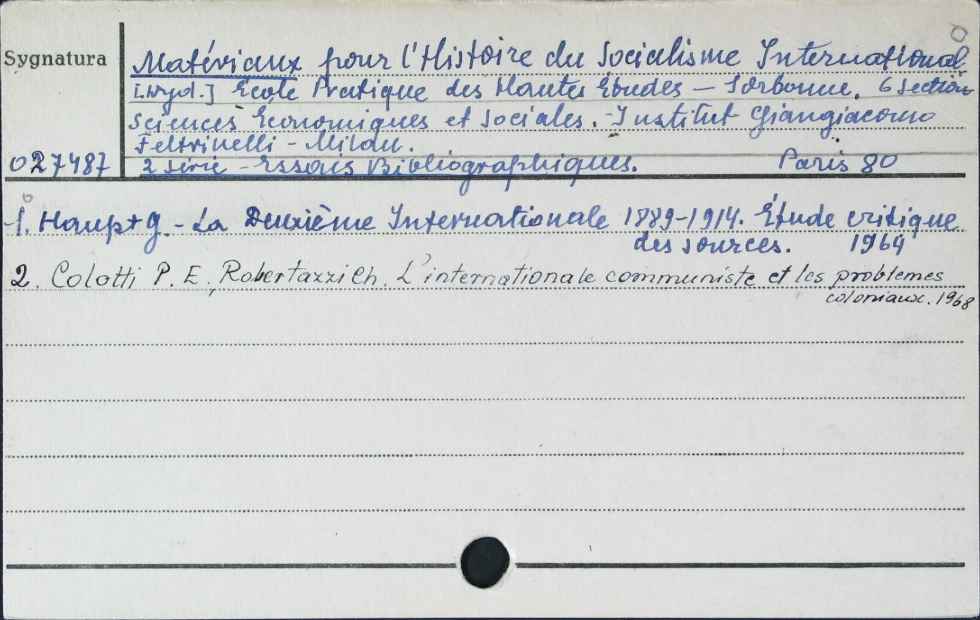 Sygnatura
Matériaux pour l'Histoire du Socialisme International.
[Wyd.] École Pratique des Hautes Études – Sorbonne. 6 section
Sciences Économiques et Sociales. - Institut Giangiacomo
Feltrinelli - Milan.
027487
2 série - Essais Bibliographiques. Paris 80
1. Haupt G. - La Deuxième Internationale 1889-1914. Étude critique
des sources. 1964
2. Colotti P. E., Robertazzi Ch. L'internationale communiste et les problemes
coloniaux. 1968